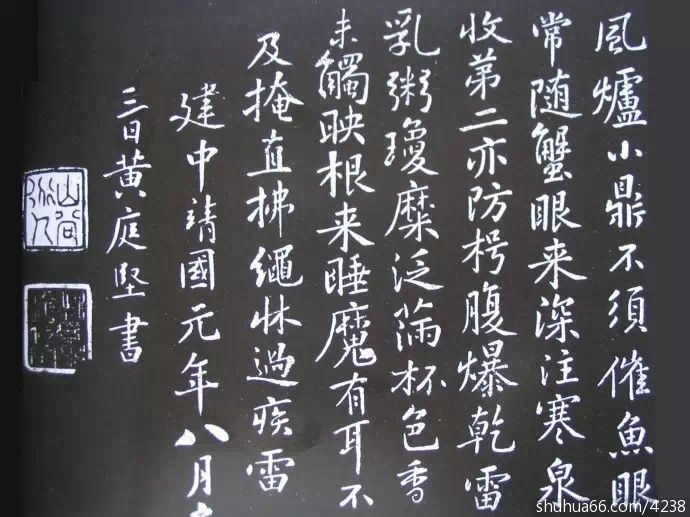 風爐小鼎不須催魚眼
常随蟹眼来深注寒泉
收第二亦防枵腹爆乾雷
乳粥瓊糜泛滿杯色香
未觸映根来睡魔有耳不
及掩直拂繩牀過疾雷
建中靖國元年八月
三日黄庭堅書
山谷
shuhua66.com/4238